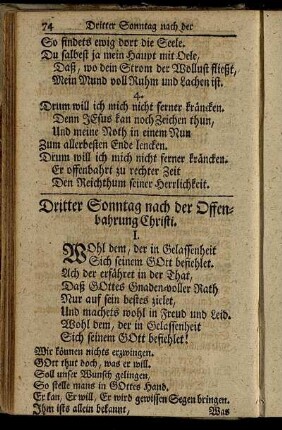 74 Dritter Sonntag nach der
So findets ewig dort die Seele.
Du salbest ja mein Haupt mit Oele,
Daß, wo dein Strom der Wollust fließt,
Mein Mund voll Ruhm und Lachen ist.
4.
Drum will ich mich nicht ferner kräncken.
Denn JEsus kan noch Zeichen thun,
Und meine Noth in einem Nun
Zum allerbesten Ende lencken.
Drum will ich mich nicht ferner kräncken.
Er offenbahrt zu rechter Zeit
Den Reichthum seiner Herrlichkeit.
Dritter Sonntag nach der Offen-
bahrung Christi.
I.
Wohl dem, der in Gelassenheit
Sich seinem GOtt befiehlet.
Ach der erfähret in der That,
Daß GOttes Gnaden-voller Rath
Nur auf sein bestes zielet,
Und machets wohl in Freud und Leid.
Wohl dem, der in Gelassenheit
Sich seinem GOtt befiehlet!
Wir können nichts erzwingen.
GOtt thut doch, was er will.
Soll unser Wunsch gelingen.
So stelle mans in GOttes Hand.
Er kan, Er will, Er wird gewissen Segen bringen.
Ihm ists allein bekannt,
Was